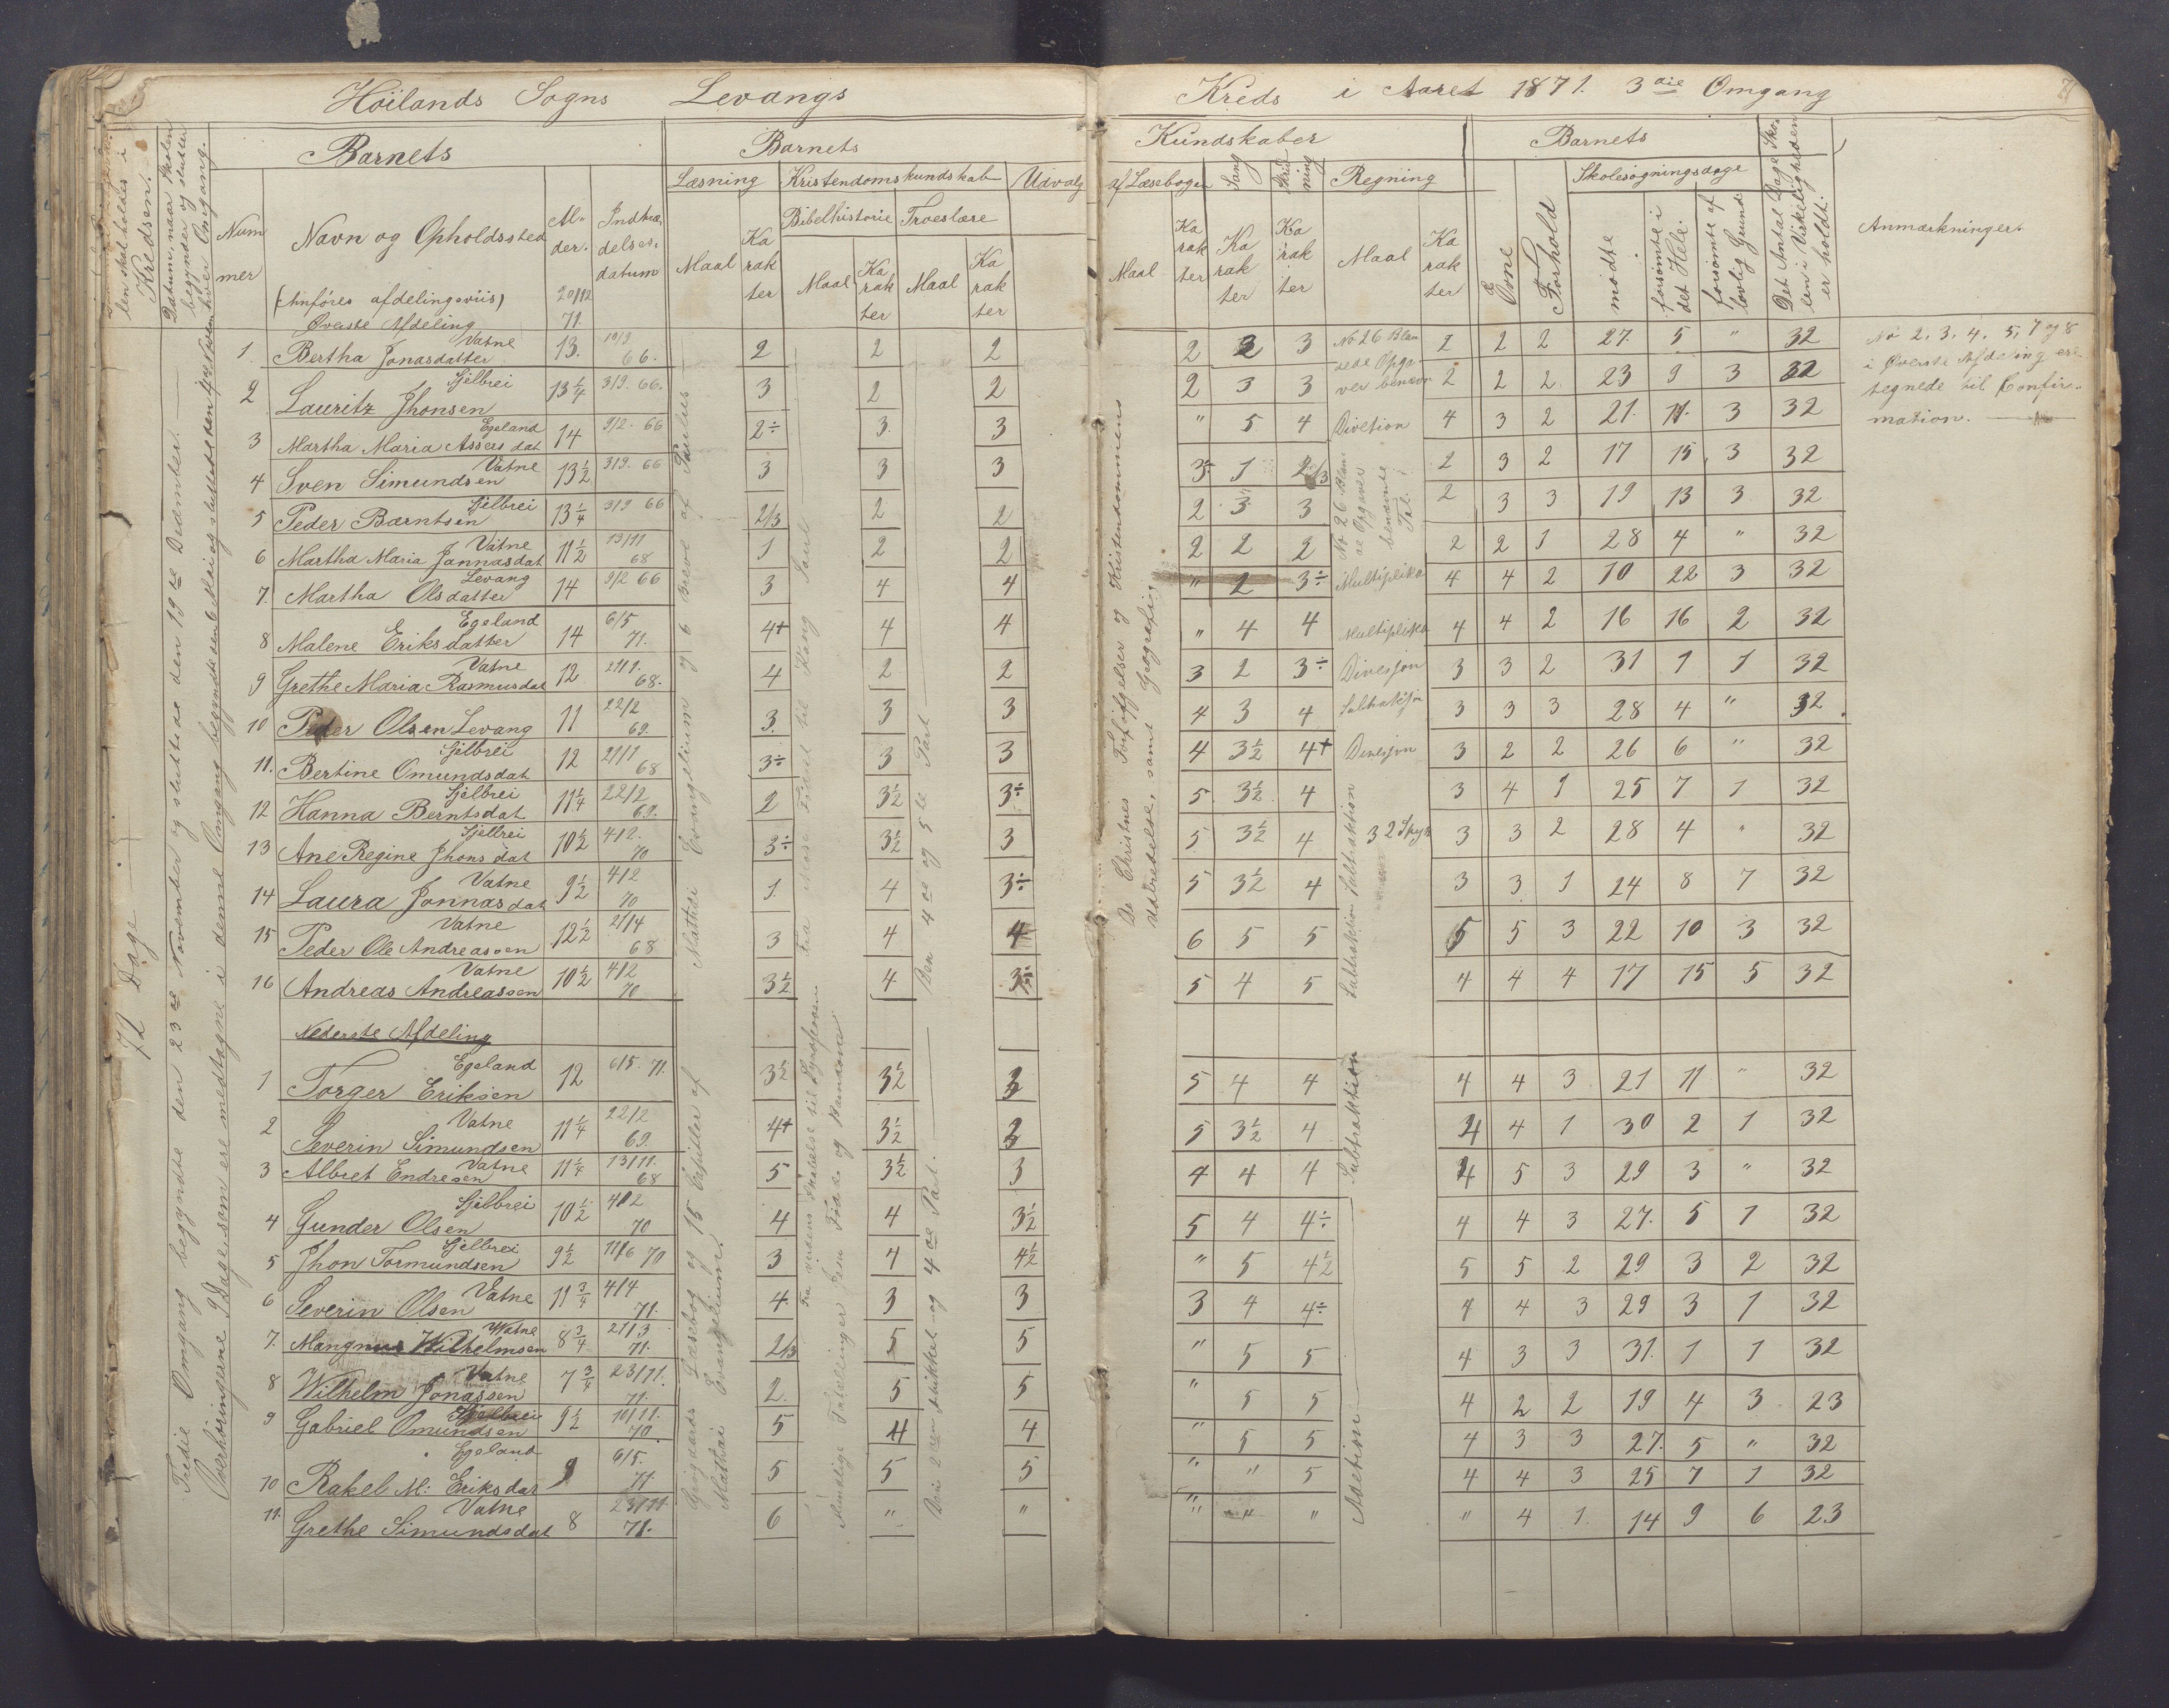 Höilands Sogns Levangs Kreds i Aaret 1871. 3die Omgang
len skal holdes i Kredsen.
Datum, naar Skolen begynder og slutter hver Omgang.
Barnets
Nummer
Navn og Opholdssted
(Anföres afdelingsviis)
Alder.
20/12 71.
Indtrædelsesdatum
Barnets
Læsning
Maal
Karakter
Kristendomskundskab
Bibelhistorie
Maal
Karakter
Troeslære
Maal
Karakter
Udvalg
Kundskaber
af Læsebogen
Maal
Karakter
Sang
Karakter
Skrivning
Karakter
Regning
Maal
Karakter
Barnets
Evne
Forhold
Skolesøgningsdage
mødte
forsömte i det Hele.
forsömte af lovlig Grund
Det Antal Dage Skolen i Virkeligheden er holdt.
Anmærkninger.
72 Dage
Tredie Omgang begyndte den 23de November og sluttede den 19de December.
Overhöringerne 9 Dage som ere medtagne i denne Omgang begyndte den 6 Mai og sluttede den
Øverste Afdeling
1. Bertha Jonasdatter Vatne 13. 10/9 66. 2 2 2 2 2 3 2 2 2 27. 5 " 32
2 Lauritz Jhonsen Sjelbrei 13¼ 3/9. 66. 3 2 2 2 3 3 2 2 2. 23 9 3 32
3 Martha Maria Assersdat Egeland 14 9/2. 66 2÷ 3. 3 " 5 4 Divition 4 3 2 21. 11. 3 32
4 Sven Simundsen Vatne 13½ 3/9. 66 3 3 3 3÷ 1 2/3 2 3 2 17 15 3 32
5 Peder Bærntsen Sjelbrei 13¼ 3/9 66 2/3 2 2 2 3 3 2 3 3 19 13 3 32
6 Martha Maria Jannasdat Vatne 11½ 13/11 68 1 2 2 2 2 2 2 2 1 28 4 " 32
7. Martha Olsdatter Levang 14 9/2 66 3 4 4 " 2 3÷ Multiplika 4 4 2 10 22 3 32
8 Malene Eriksdatter Egeland 14 6/5 71. 4+ 4 4 " 4 4 Multiplika 4 4 2 16 16 2 32
9 Grethe Maria Rasmusdat Vatne 12 21/1. 68. 4 2 2 3 2 3÷ Divesjon 3 3 2 31 1 1 32
10 Peder Olsen Levang 11 22/2 69. 3. 3 3 4 3 4 3 3 3 28 4 " 32
11. Bertine Omundsdat Sjelbrei 12 21/1 68 3÷ 3 3 4 3½ 4+ Divesjon 3 2 2 26 6 " 32
12 Hanna Berntsdat Sjelbrei 11¼ 22/2 69. 2 3½ 3÷ 5. 3½ 4 3 4 1 25 7 1 32
13 Ane Regine Jhonsdat Sjelbrei 10½ 4/2. 70 3÷ 3½ 3 5 3½ 4 3 3 2 28 4 " 32
14 Laura Jonnasdat Vatne 9½ 4/2 70 1. 4 3÷ 5 3½ 4 3 3 1 24 8 7 32
15 Peder Ole Andreassen Vatne 12½ 21/4 68 3 4 4 6 5 5 5 5 3 22 10 3 32
16 Andreas Andreassen Vatne 10½ 4/2 70 3½ 4 3÷ 5 4 5 4 4 4 17 15 5 32
Nederste Afdeling
1 Torger Eriksen Egeland 12 6/5. 71. 3½ 3½ 3 5 4 4 4 4 3 21 11 " 32
2 Severin Simundsen Vatne 11¼ 22/2 69. 4+ 3½ 3 5 3½ 4 4 4 1 30 2 1 32
3 Albret Endresen Vatne 11¼ 13/11. 68 5 3½ 3 4 4 4 4 5 3 29 3 " 32
4 Gunder Olsen Sjelbrei 10½ 4/2 70 4 4 3½ 5 4 4÷ 4 4 3 27. 5 1 32
5 Jhon Tormundsen Sjelbrei 9½ 11/6 70 3 4 4½ " 5 4½ 5 5 2 29 3 2 32
6 Severin Olsen Vatne 11¾ 4/4 71. 4. 3 3 3 4 4÷ 4 4 3 29 3 1 32
7. Mangnus Wilhelmsen Watne 8¾ 21/3 71. 2/3 5 5 " 5 5 4 3 3 31. 1 1 32
8 Wilhelm Jonassen Vatne 7¾ 23/11. 71. 2. 5 5 " 5 5 4 2 2 19 4 3 23
9 Gabriel Omundsen Sjelbrei 9½ 10/11. 70. 5 4 4 " 5 5 4 3 3 27. 5 " 32
10 Rakel M: Eriksdat Egeland 9 6/5. 71. 5 5 5 " " 5 4 4 3 25 7 1 32
11. Grethe Simundsdat Vatne 8 23/11 71. 6 " " " " " " 4 1. 14 9 6 23
Mathæi Evangelium og 6 Breve af Paulus
Fra Mose Fald til Kong Saul
Den 4de og 5te Part
De Christnes Forfölgelser og Kristendommens Udbredelse, samt Geografi
No 26 Blandede Opgaver benævn
No 26 Blandede Opgaver benævnte Tal.
Subtraktion
Subtraktion
Subtraktion
Læsebog og 15 Capitler af Mathæi Evangelium.
og 4de Part.
Subtraktion
Adetion
No 2, 3, 4, 5, 7 og 8
i Øverste Afdeling ere
tegnede til Confirmation.